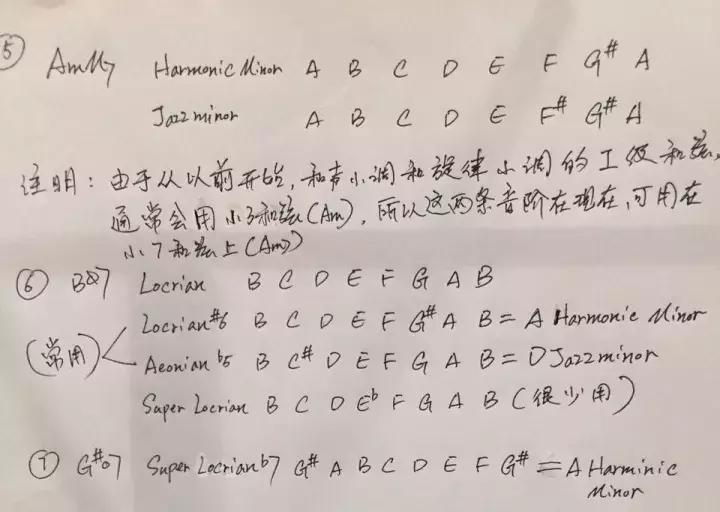 ⑤ AmM7 Harmonic Minor A B C D E F G# A
Jazz minor A B C D E F# G# A
注明：由于从以前开始，和声小调和旋律小调的I级和弦，
通常会用小3和弦(Am)，所以这两条音阶在现在，可用在
小7和弦上(Am7)
⑥ Bø7 Locrian B C D E F G A B
Locrian#6 B C D E F G# A B = A Harmonic Minor
(常用) Aeonian b5 B C# D E F G A B = D Jazz minor
Super Locrian B C D Eb F G A B (很少用)
⑦ G#o7 Super Locrian b7 G# A B C D E F G# = A Harminic
Minor